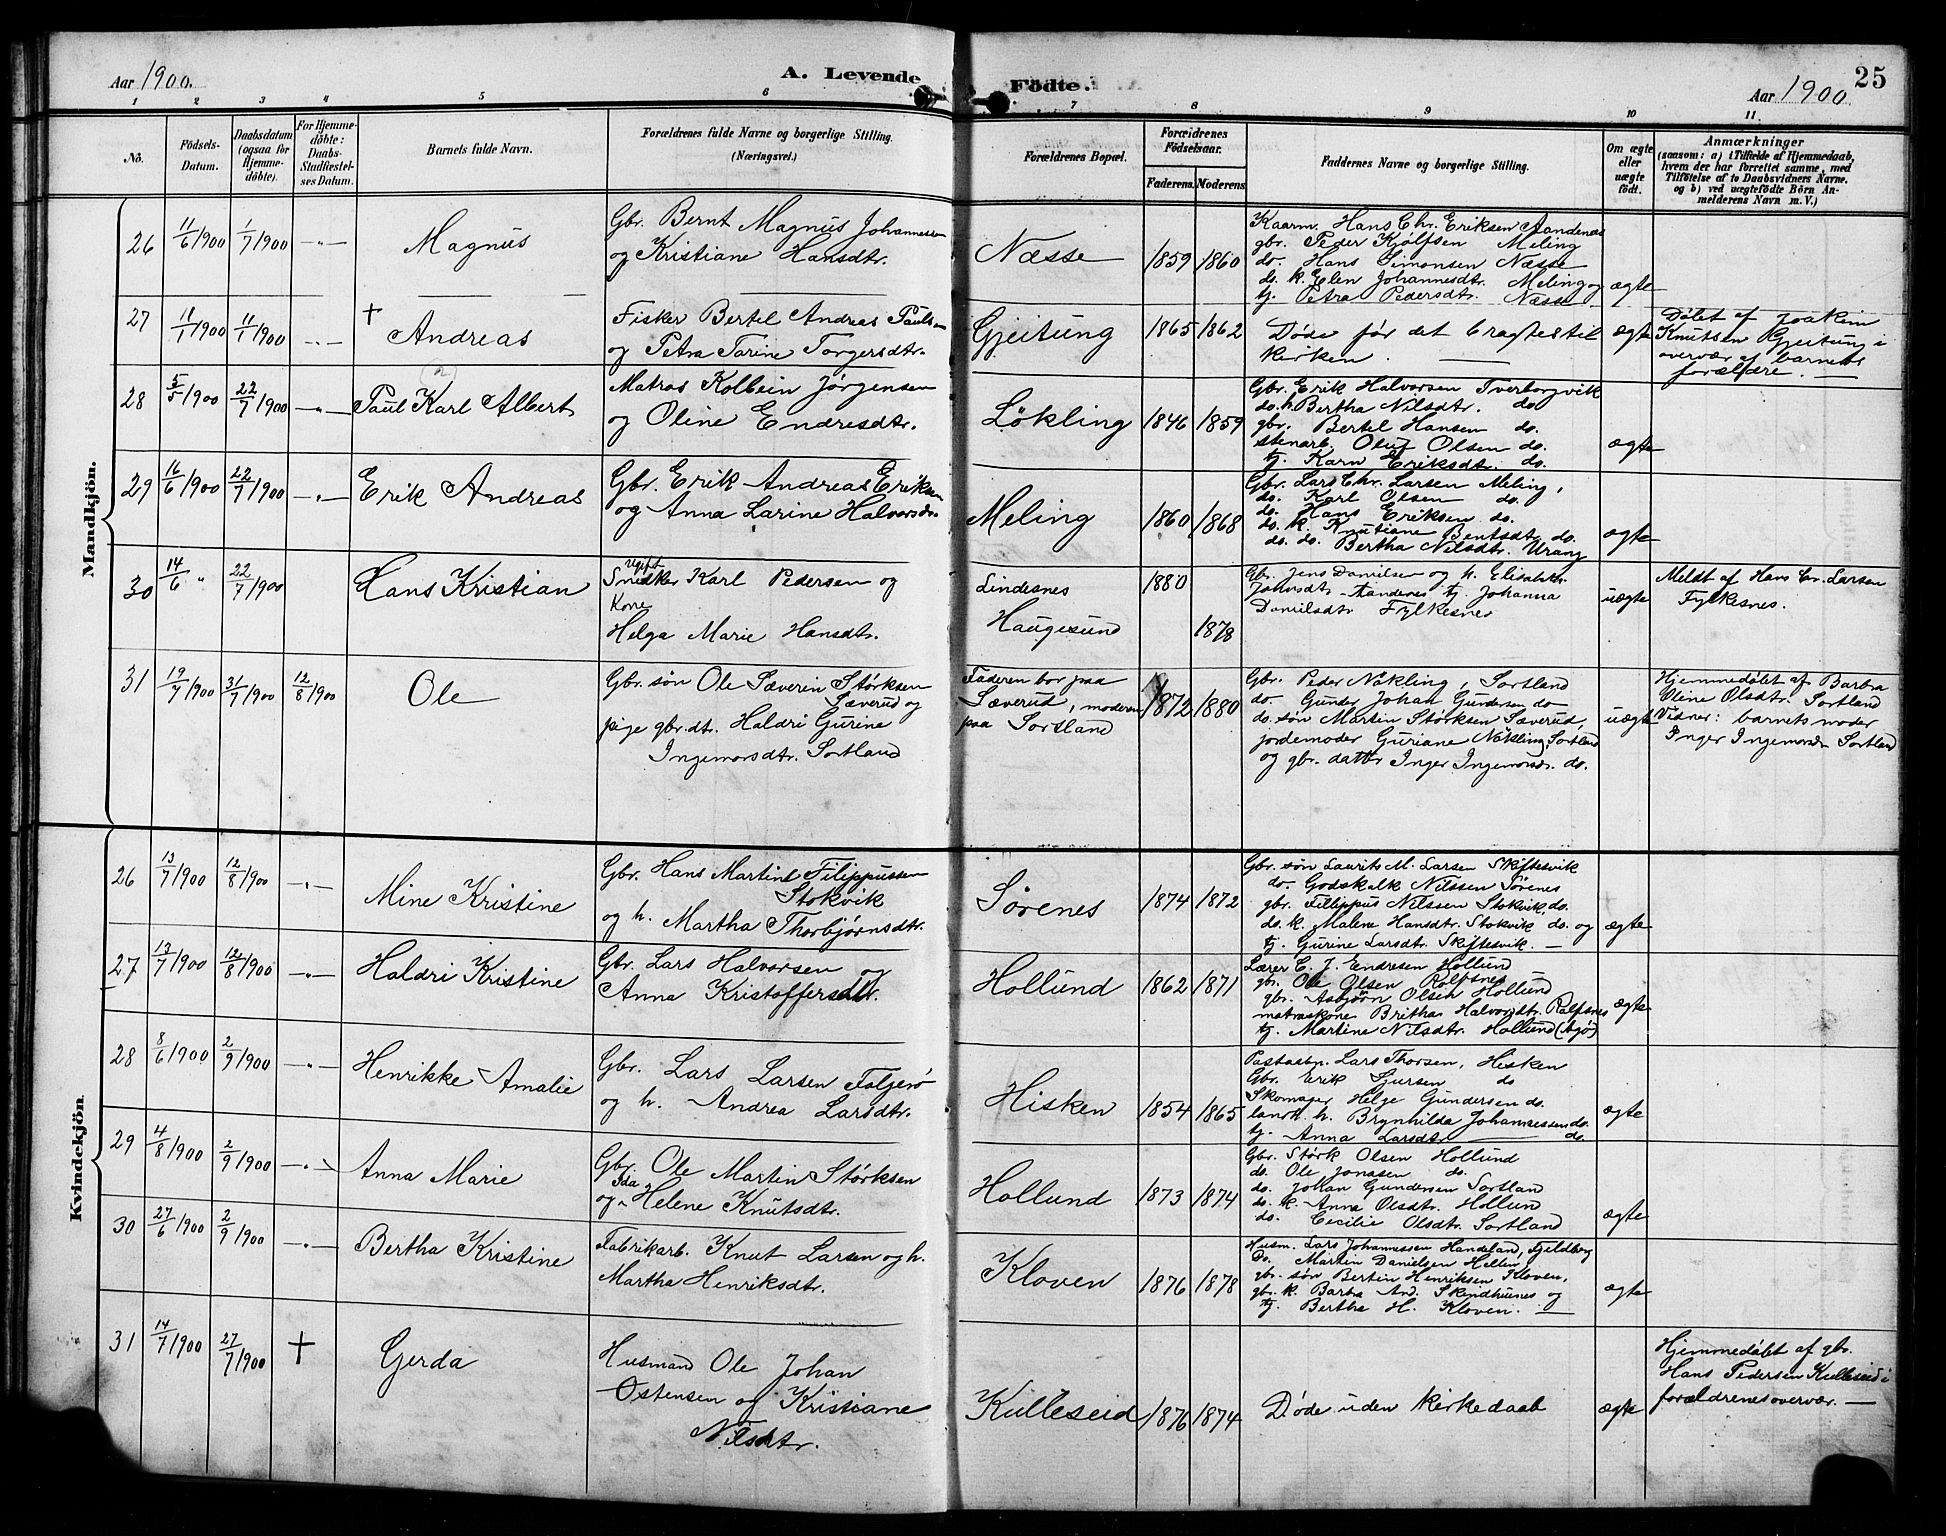 Aar 1900.
A. Levende
Födte.
25
Aar 1900
1 2 3 4 5 6 7 8 9 10 11.
No.
Födsels-Datum.
Daabsdatum (ogsaa for Hjemme-döbte).
For Hjemme-döbte: Daabs-Stadfæstel-ses Datum.
Barnets fulde Navn.
Forældrenes fulde Navne og borgerlige Stilling. (Næringsvei.)
Forældrenes Bopæl.
Forældrenes Födselsaar.
Faderens. Moderens.
Faddernes Navne og borgerlige Stilling.
Om ægte eller uægte födt.
Anmærkninger
(saasom: a) i Tilfælde af Hjemmedaab, hvem der har forrettet samme, med Tilföielse af to Daabsvidners Navne. og b) ved uægtefödte Börn An-melderens Navn m. V.)
Mandkjön.
26 11/6 1900 1/7 1900 -"-
Magnus
Gbr. Bernt Magnus Johannessen
og Kristiane Hansdtr.
Næsse
1859 1860
Kaarm. Hans Chr. Eriksen Aandenæs
gbr. Peder Kjølfsen Meling
do. Hans Simonsen Næsse
do. k. Elen Johannesdtr. Meling og
tj. Petra Pedersdtr. Næsse
ægte
27 11/1 1900 -"-
† Andreas
Fisker Bertel Andreas Paulsen
og Petra Tarine Torgersdtr.
Gjeitung
1865 1862
Døde før det bragtes til
kirken.
ægte
Døbt af Joakim
Knutsen Gjeitung i
overvær af barnets
forældre.
28 5/5 1900 22/7 1900 -"-
Paul Karl Albert
Matros Kolbein Jørgensen
og Oline Endresdtr.
Løkling
1846 1859
Gbr. Erik Halvorsen Tverborgvik
do. h. Bertha Nilsdtr. do.
gbr. Bertel Hansen do.
stenarb. Oluf Olsen do.
tj. Karn Eriksdtr. do.
ægte
29 16/6 1900 22/7 1900 -"-
Erik Andreas
Gbr. Erik Andreas Eriksen
og Anna Larine Halvorsdr.
Meling
1860 1868
Gbr. Lars Chr. Larsen Meling,
do. Karl Olsen do.
do. Hans Eriksen do.
do. k. Knutiane Bentsdtr. do.
do. do. Bertha Nilsdtr. Urang
ægte
30 14/6 " 22/7 1900
Hans Kristian
Ugift
Snedker Karl Pedersen og
Kone
Helga Marie Hansdtr.
Lindesnes
Haugesund
1880
1878
Gbr. Jens Danielsen og h. Elisabeth
Johnsdtr Aandenes tj. Johanna
Danielsdtr Fylkesnes
uægte
Meldt af Hans Cr. Larsen
Fylkesnes.
31 19/7 1900 31/7 1900 12/8 1900
Ole
Gbr. søn Ole Sæverin Størksen
Sæverud og
pige gbr.dt. Haldri Gurine
Ingemorsdtr. Sortland
Faderen bor paa
Sæverud, moderen
paa Sortland
1872 1880
Gbr. Peder Nøkling, Sortland
do. Gunder Johan Gundersen do
do. søn Martin Størksen Sæverud,
jordemoder Guriane Nøkling, Sortland
og gbr. dattr Inger Ingemorsdr. do.
uægte
Hjemmedøbt af Barbra
Oline Olsdtr. Sortland
Vidner: barnets moder
Inger Ingemorsdr Sortland
Kvindekjön
26 13/7 1900 12/8 1900 -"-
Mine Kristine
Gbr. Hans Martin Filippussen
Stokvik
og h. Martha Thorbjørnsdtr.
Sørenes
1874 1872
Gbr. søn Laurits M. Larsen Skiftesvik
do. Godskalk Nilssen Sørenes
gbr. Fillippus Nilssen Stokvik, do.
do. k. Malene Hansdtr. Stokvik do. og
tj. Gurine Larsdtr. Skiftesvik.
ægte
27 13/7 1900 12/8 1900 -"-
Haldri Kristine
Gbr. Lars Halvorsen og
Anna Kristoffersdtr.
Hollund
1862 1871
Lærer C. J. Endresen Hollund
gbr. Ole Olsen Rolfsnes
gbr. Asbjørn Olsen Hollund
matroskone Britha Halvorsdtr. Rolfsnes
tj. Martine Nilsdtr. Hollund
ægte
28 8/6 1900 2/9 1900 -"-
Henrikke Amalie
Gbr. Lars Larsen Folgerø
og h. Andrea Larsdtr.
Hisken
1854 1865
Lars Thorsen, Hisken
Gbr. Erik Sjursen do
Skomager Helge Gundersen do.
landh. h. Brynhilda Johannessen do.
tj. Anna Larsdtr. do
ægte
29 4/8 1900 2/9 1900 -"-
Anna Marie
Gbr. Ole Martin Størksen
Ida
og Helene Knutsdtr.
Hollund
1873 1874
Gbr. Størk Olsen Hollund
do. Ole Jonasen do.
do. Johan Gundersen Sortland
do. k. Anna Olsdtr. Hollund
do. Cecilie Olsdtr. Sortland
ægte
30 27/6 1900 2/9 1900 -"-
Bertha Kristine
Fabrikarb. Knut Larsen og h.
Martha Henriksdtr.
Kloven
1876 1878
Husm. Lars Johannessen Handeland, Fjeldberg
Do. Martin Danielsen Hellen
gbr. søn Bertin Henriksen Kloven,
gbr. k. Barba And. Skindhusnes og
tj. Bertha H. Kloven.
ægte
31 14/7 1900 27/7 1900 †
Gerda
Husmand Ole Johan
Ostensen og Kristiane
Nilsdtr.
Kulleseid
1876 1874
Døde uden kirkedaab
ægte
Hjemmedøbt af gbr.
Hans Pedersen Kulleseid i
forældrenes overvær.